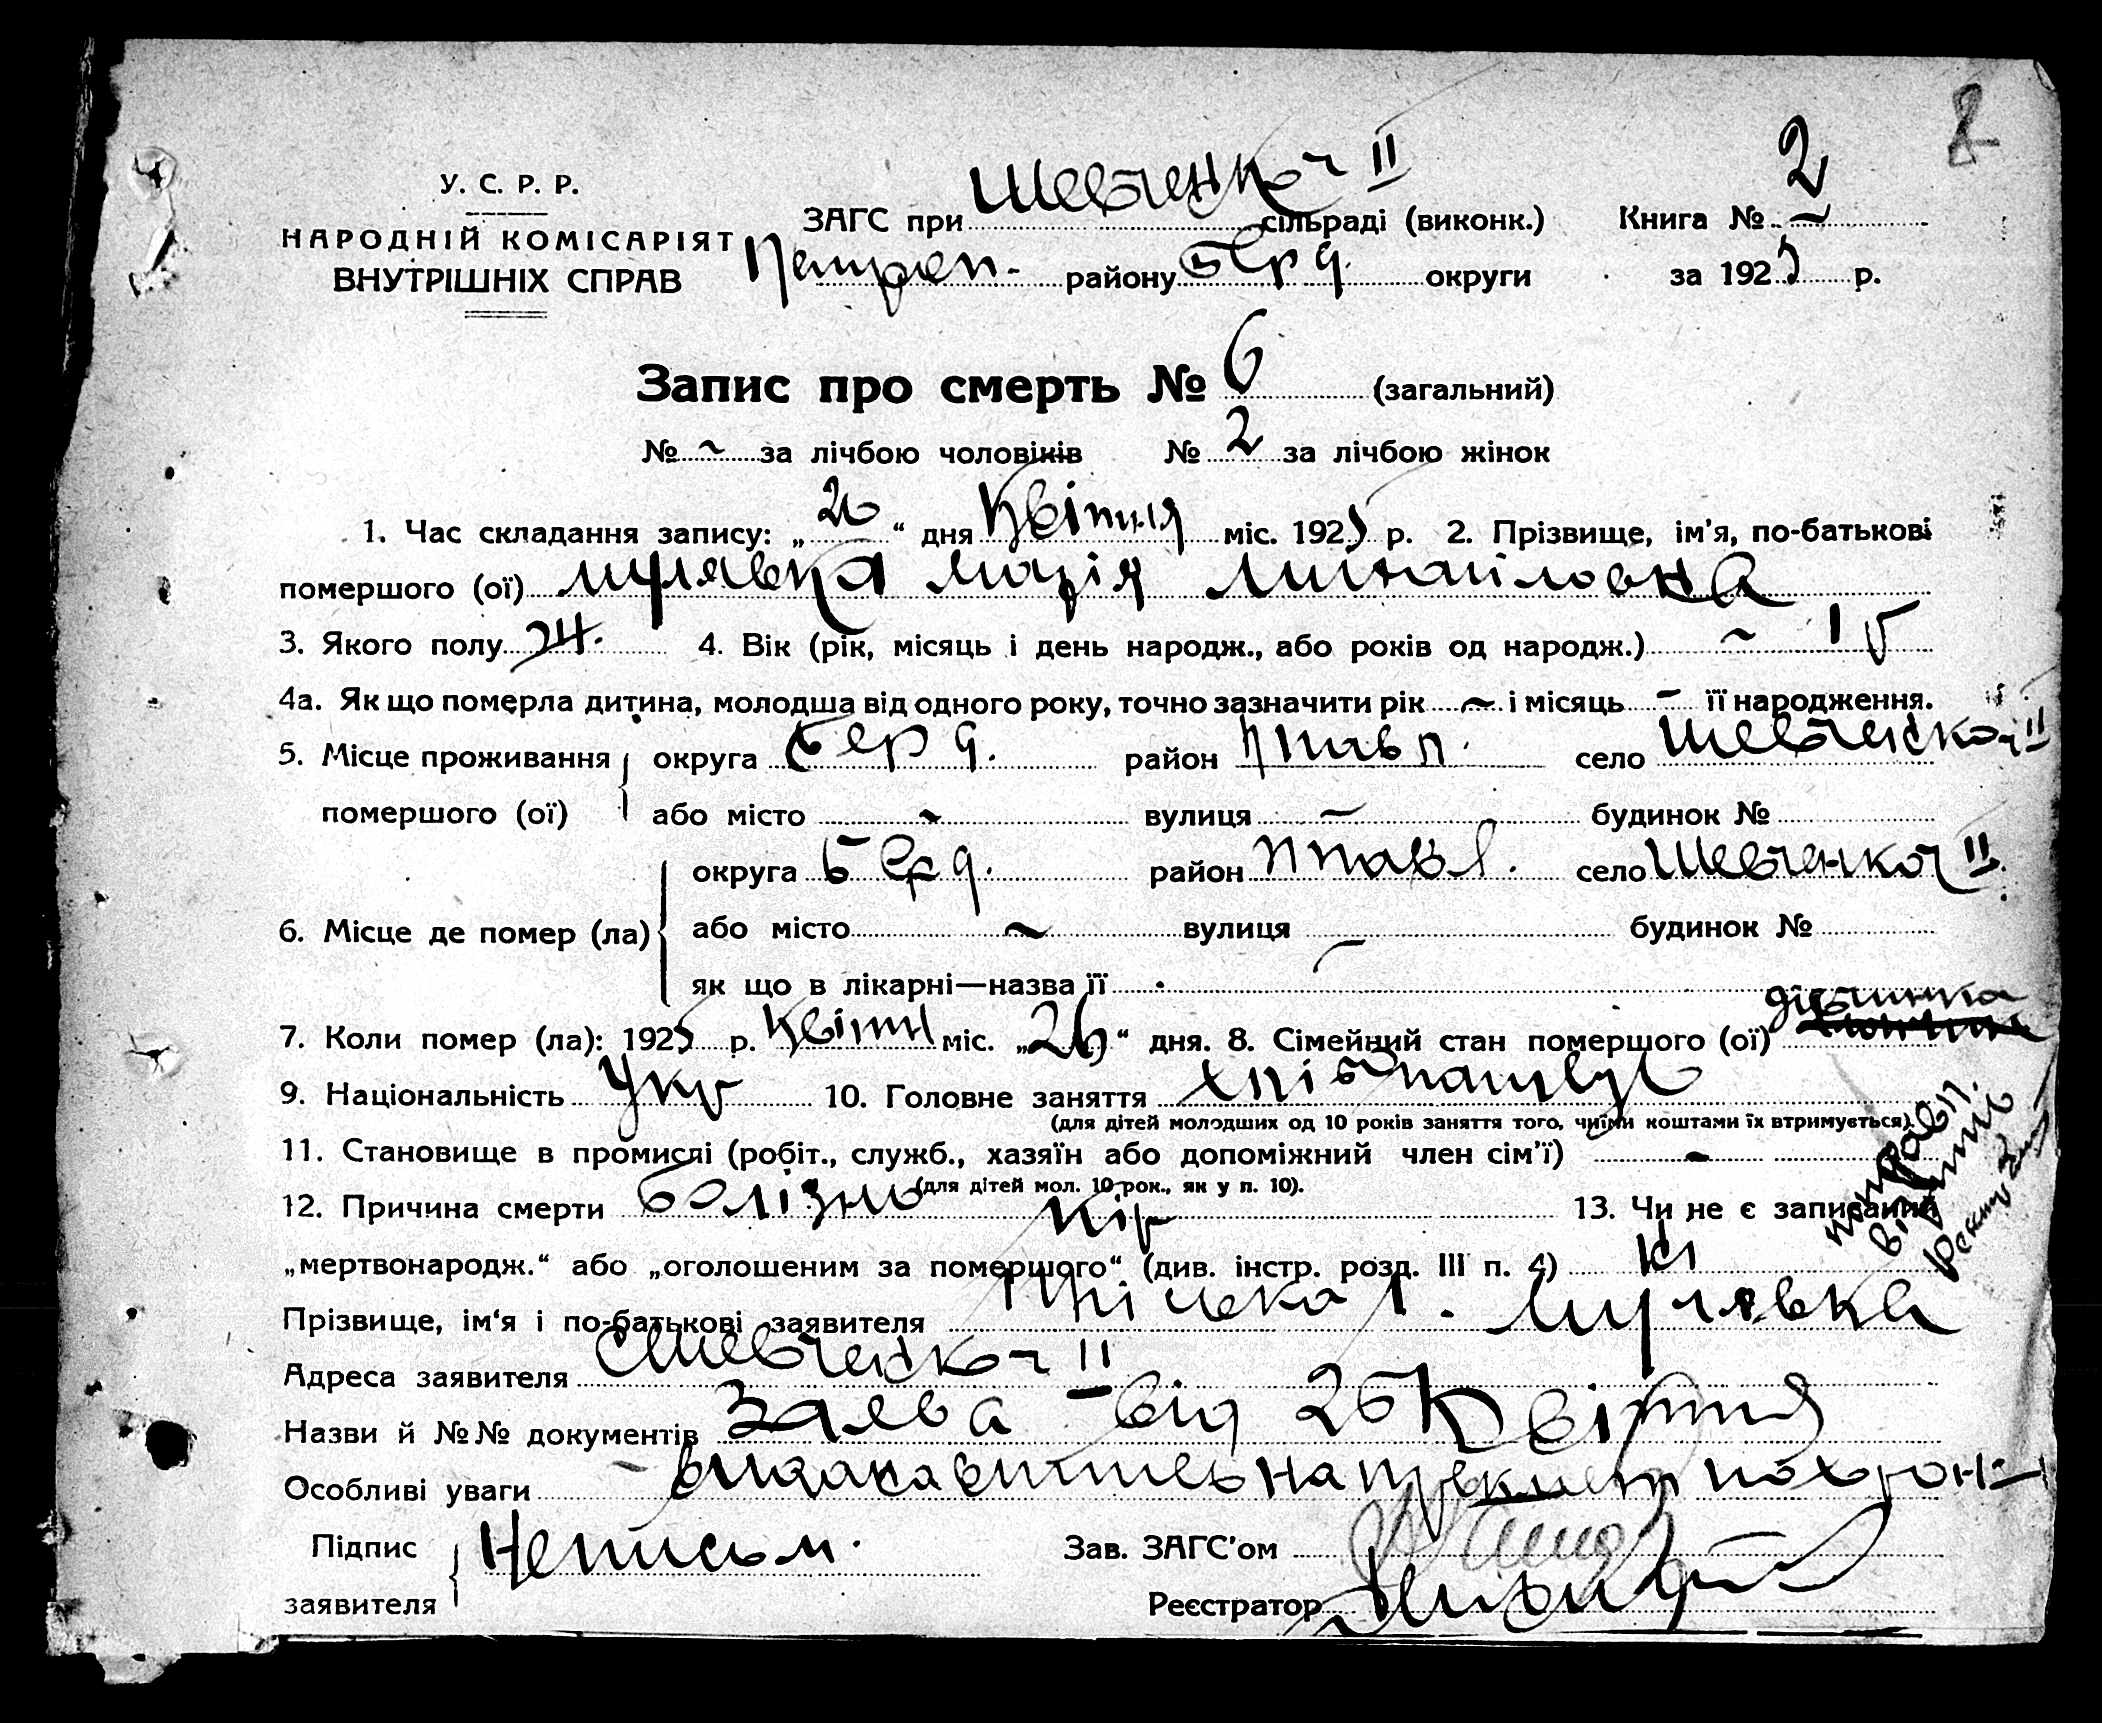 2
У. С. Р. Р.
НАРОДНІЙ КОМІСАРІЯТ
ВНУТРІШНІХ СПРАВ
ЗАГС при Шевченко II сільраді (виконк.)
району Берд. округи
Книга № 2
за 1925 р.
Запис про смерть № 6 (загальний)
№ ~ за лічбою чоловіків № 2 за лічбою жінок
1. Час складання запису: „26“ дня Квітня міс. 1925 р. 2. Прізвище, ім'я, по-батькові
помершого (ої) Мулявка Марія Михайловна
3. Якого полу Ж. 4. Вік (рік, місяць і день народж., або років од народж.) ~ 15
4а. Як що померла дитина, молодша від одного року, точно зазначити рік ~ і місяць – її народження.
5. Місце проживання помершого (ої) округа Берд. район село Шевченко II
або місто ~ вулиця ~ будинок №
6. Місце де помер (ла) округа Берд. район село Шевченко II
або місто ~ вулиця – будинок №
як що в лікарні—назва її
7. Коли помер (ла): 1925 р. Квітн міс. „26“ дня. 8. Сімейний стан помершого (ої) дівчинка
9. Національність Укр 10. Головне заняття
(для дітей молодших од 10 років заняття того, чиїми коштами їх втримується).
11. Становище в промислі (робіт., служб., хазяїн або допоміжний член сім'ї) –
(для дітей мол. 10 рок., як у п. 10).
12. Причина смерти болізнь Кір 13. Чи не є записаний
„мертвонародж.“ або „оголошеним за помершого“ (див. інстр. розд. III п. 4) Ні
Прізвище, ім'я і по-батькові заявителя Мулявка
Адреса заявителя Шевченко II
Назви й №№ документів Заява від 26 Квітня
Особливі уваги похорони
Підпис заявителя Неписьм.
Зав. ЗАГС'ом
Реєстратор